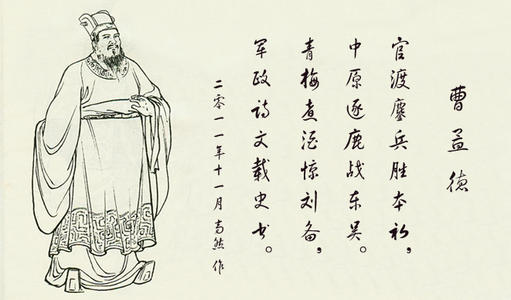 曹孟德
官渡鏖兵胜本初，
中原逐鹿战东吴。
青梅煮酒惊刘备，
军政诗文载史书。
二零一一年十一月 尚然 作